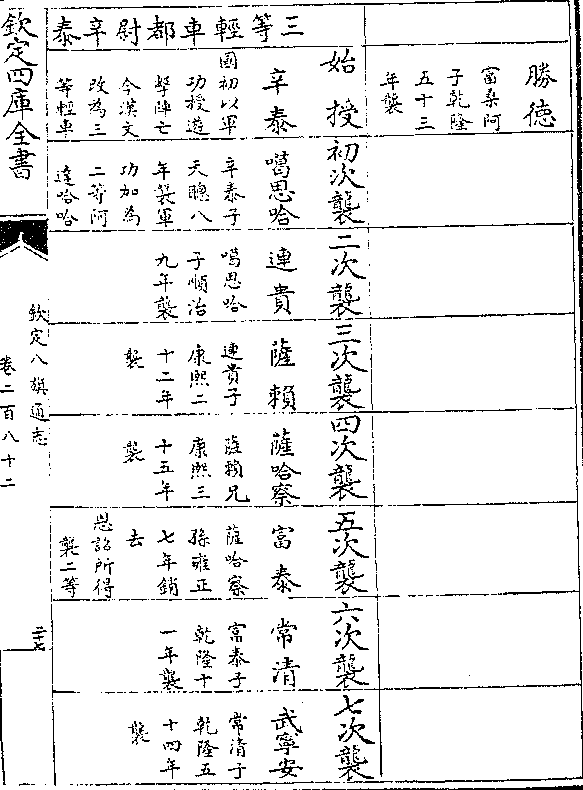 勝德
富桑阿
子乾隆
五十三
年襲
三等輕車都尉辛泰
始授
辛泰
國初以軍
功授遊
擊陣亡
今漢文
改為三
等輕車
初次襲
噶思哈
辛泰子
天聰八
年襲軍
功加為
二等阿
達哈哈
二次襲
連貴
噶思哈
子順治
九年襲
三次襲
薩賴
連貴子
康熙二
十二年
襲
四次襲
薩哈察
薩賴兄
康熙三
十五年
襲
五次襲
富泰
薩哈察
孫雍正
七年銷
去
恩詔所得
襲二等
六次襲
常清
富泰子
乾隆十
一年襲
七次襲
武寧安
常清子
乾隆五
十四年
襲
欽定四庫全書
欽定八旗通志
卷二百八十二